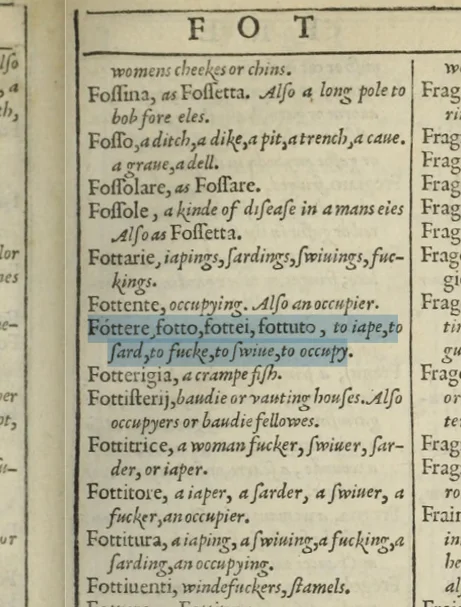 FOT
womens cheekes or chins.
Foſſina, as Foſſetta. Alſo a long pole to
bob fore eles.
Foſſo, a ditch, a dike, a pit, a trench, a caue.
a graue, a dell.
Foſſolare, as Foſſare.
Foſſole, a kinde of diſeaſe in a mans eies
Alſo as Foſſetta.
Fottarie, iapings, ſardings, ſwiuings, fuc-
kings.
Fottente, occupying. Alſo an occupier.
Fóttere, fotto, fottei, fottuto, to iape, to
ſard, to fucke, to ſwiue, to occupy.
Fotterigia, a crampe fiſh.
Fottiſterij, baudie or vauting houſes. Alſo
occupyers or baudie fellowes.
Fottitrice, a woman fucker, ſwiuer, ſar-
der, or iaper.
Fottitore, a iaper, a ſarder, a ſwiuer, a
fucker, an occupier.
Fottitura, a iaping, a ſwiuing, a fucking, a
ſarding, an occupying.
Fottiuenti, windefuckers, ſtamels.